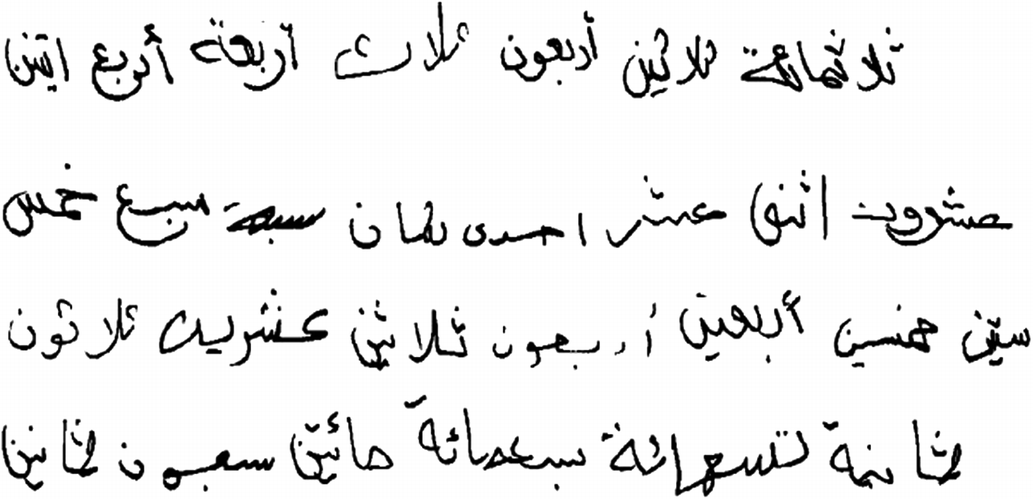 ثلاثمائة ثلاثين أربعون ثلاث أربعة أربع اثنين
عشرون اثنى عشر احدى ثمان سبعة سبع خمس
ستين خمسين أربعين أربعون ثلاثين عشرين ثلاثون
ثمانية تسعمائة سبعمائة مائتين سبعون ثمانين